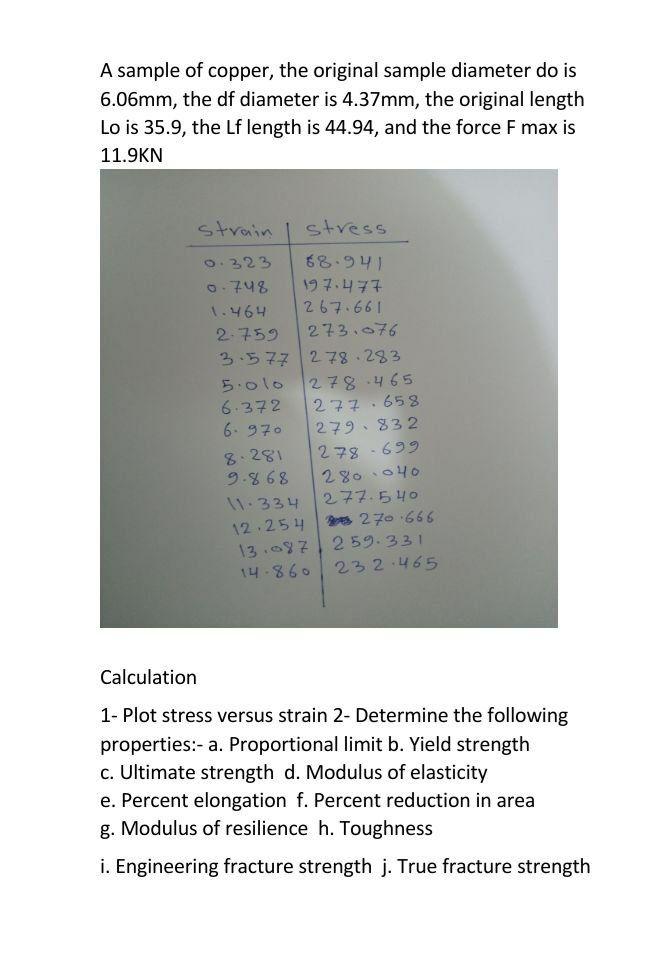 A sample of copper, the original sample diameter do is
6.06mm, the df diameter is 4.37mm, the original length
Lo is 35.9, the Lf length is 44.94, and the force F max is
11.9KN
Strain | Stress
0.323 68.941
0.748 197.477
1.464 267.661
2.759 273.076
3.577 278.283
5.010 278.465
6.372 277.658
6.970 279.832
8.281 278.699
9.868 280.040
11.334 277.540
12.254 270.666
13.087 259.331
14.860 232.465
Calculation
1- Plot stress versus strain 2- Determine the following
properties:- a. Proportional limit b. Yield strength
c. Ultimate strength d. Modulus of elasticity
e. Percent elongation f. Percent reduction in area
g. Modulus of resilience h. Toughness
i. Engineering fracture strength j. True fracture strength